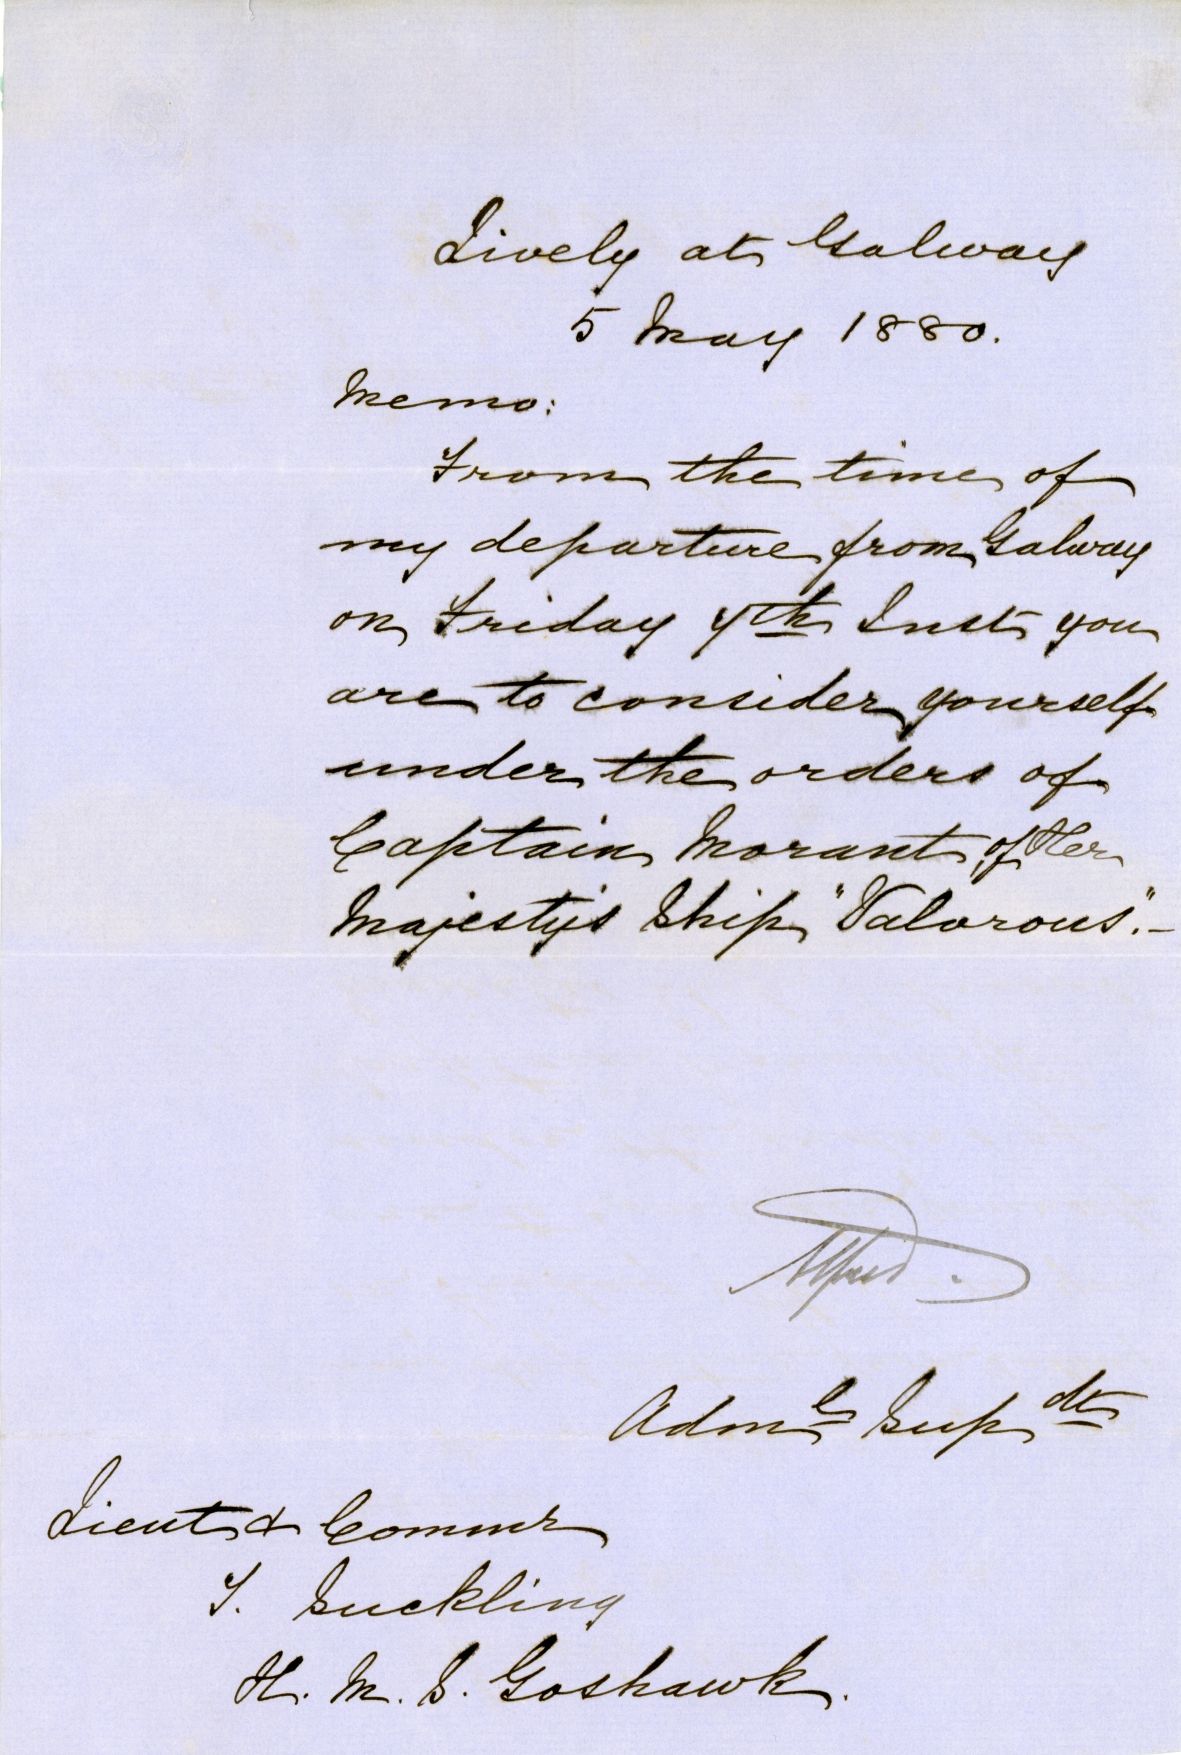 Lively at Galway
5 May 1880.
Memo:
From the time of
my departure from Galway
on Friday 7th Inst you
are to consider yourself
under the orders of
Captain Morant of Her
Majesty's Ship "Valorous".-
Alfred.
Adml Supdt
Lieut & Commr
T. Suckling
H. M. S. Goshawk.